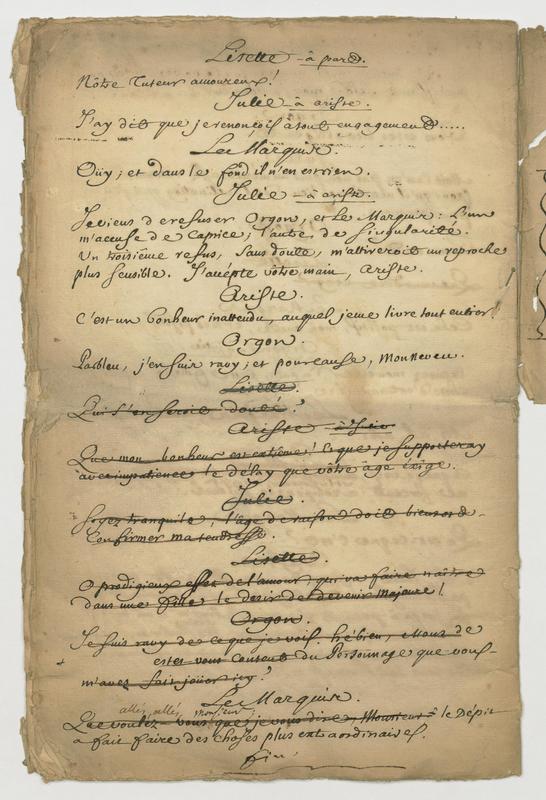 Lisette - à part.
Nôtre Tuteur amoureux!
Julie - à ariste.
J'ay dit que je renonçois à tout engagement.....
Le Marquis.
Oüy; et dans le fond il n'en est rien.
Julie - à ariste.
Je viens de refuser Orgon, et Le Marquis: L'un
m'accuse de Caprice; l'autre, de singularité.
Un troisième refus, sans doute, m'attireroit un reproche
plus sensible. J'accepte vôtre main, Ariste.
Ariste.
C'est un bonheur inattendu, auquel je me livre tout entier!
Orgon.
Parbleu, j'en suis ravy; et pour cause, mon neveu.
Lisette.
Qui s'en seroit douté?
Ariste
Que mon bonheur est extrême! Et que je supporteray
avec impatience le délay que vôtre age éxige.
Julie.
Soyez tranquile, l'âge de raison doit bien
Confirmer ma tendresse.
Lisette.
O prodigieux effet de l'amour, qui va faire naître
dans une fille le desir de devenir majeure!
Orgon.
Je suis ravy de ce que je vois. hé bien, de
estes vous content du Personnage que vous
m'avez fait joüer icy?
Le Marquis.
allez, allez, monsieur,
Que voulez-vous que je vous dise, Monsieur? le Dépit
a fait faire des choses plus extraordinaires.
fin.